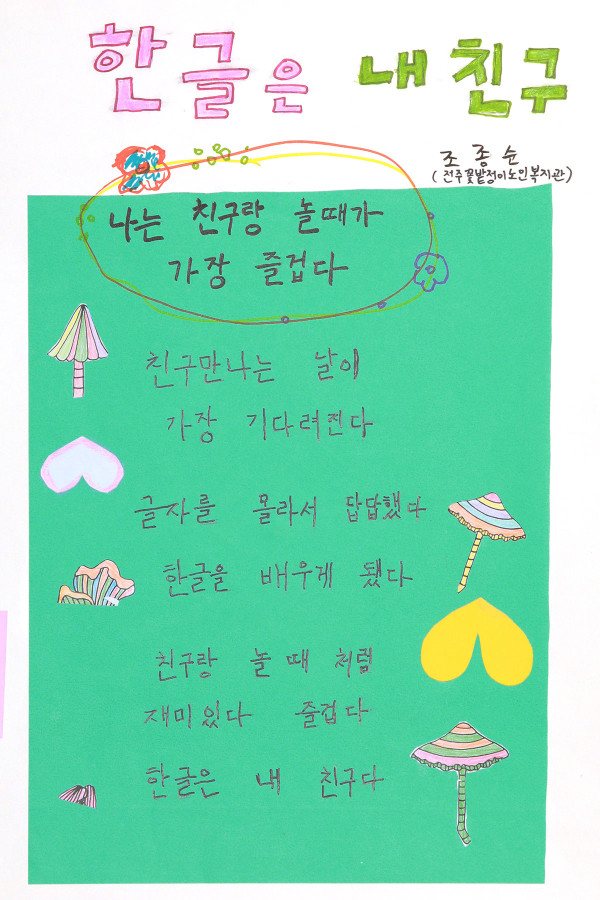 한글은 내 친구
조종순
(전주꽃밭정이노인복지관)
나는 친구랑 놀때가
가장 즐겁다
친구만나는 날이
가장 기다려진다
글자를 몰라서 답답했다
한글을 배우게 됐다
친구랑 놀때 처럼
재미있다 즐겁다
한글은 내 친구다